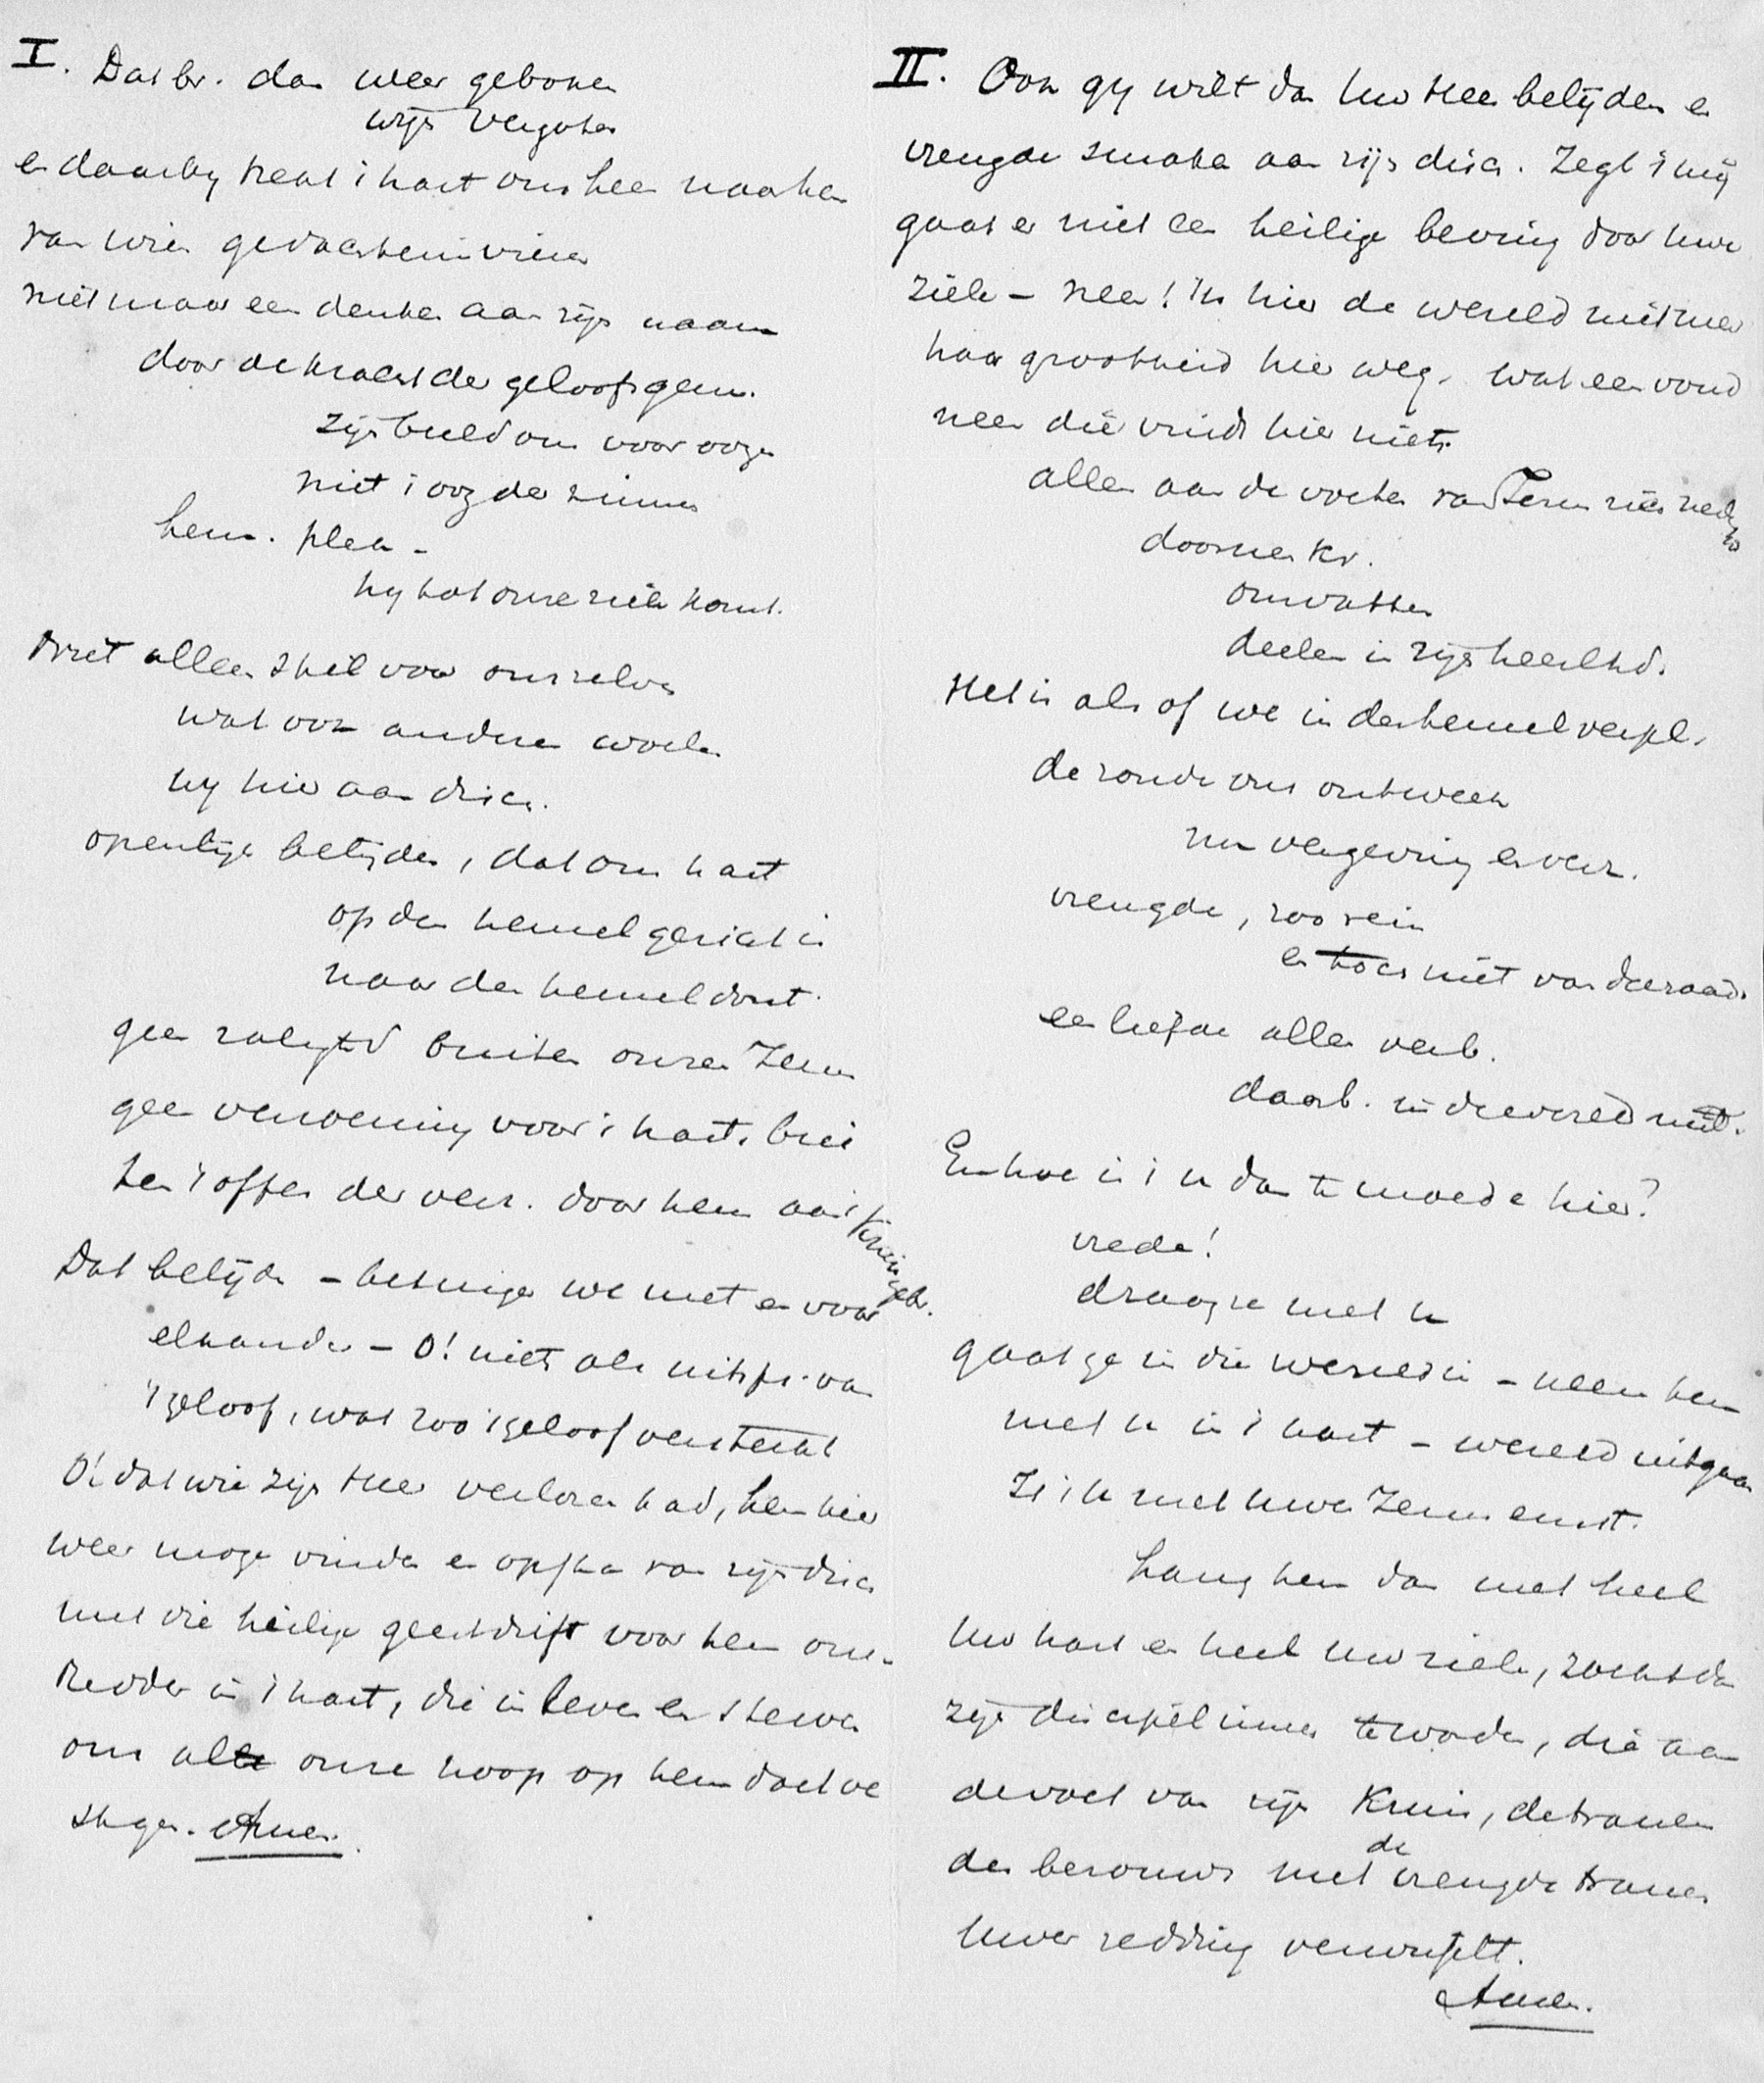 I. Dat br. dan weer gebroken
wijn vergoten
en daarby trekt 't hart ons heen naar hem
van wien gedachtenis vieren
niet maar een denken aan zijn naam
door de kracht der geloofsgem.
zijn beeld ons voor oogen
niet 't oog der zinnen
hem.
hy tot onze ziele komt.
Niet alleen stil voor ons zelven
wat ook anderen
wy hier aan disch.
openlijk belijden, dat ons hart
op den hemel gericht is
naar den hemel dorst.
geen zaligh'd buiten onzen Jezus
geen verzoening voor 't hart, bui
ten 't offer der verz. door hem aan 't Kruis gebr.
Dat belijden – betuigen we met en voor
elkander – O! niets als uitspr. van
't geloof, wat zoo 't geloof versterkt
O! dat wie zijn Heer verloren had, hem hier
weer moge vinden en opsta van zijn disch
met die heilige geestdrift voor hem onz.
Redder in 't hart, die in leven en sterven
ons al onze hoop op hem doet ve
stigen. Amen.
II. Ook gy wilt dan uw Heer belijden en
vreugde smaken aan zijn disch. Zegt 't mij
gaat er niet een heilige beving door uwe
ziele – neen! Is hier de wereld niet meer
haar grootheid hier weg. wat een vond
neen die vindt hier niets.
allen aan de voeten van Jezus
door het kr.
omvatten
deelen in zijn heerlhd.
Het is als of we in den hemel verpl.
de zonde ons ontweek
nu vergeving en verz.
vreugde, zoo rein
en niet van
een liefde allen verb.
daarb. in de wereld niet.
En hoe is 't u dan te moede hier?
vrede!
draag ze met u
gaat ge in die wereld in – neem hem
met u in 't hart – wereld uitgaan
Zt 't u met uwen Jezus ernst.
hang hem dan met heel
uw hart en heel uw ziele,
zijn discipel immer te worden, die aan
de voet van zijn Kruis, de tranen
des berouws met de vreugde tranen
uwer redding verwisselt.
Amen.